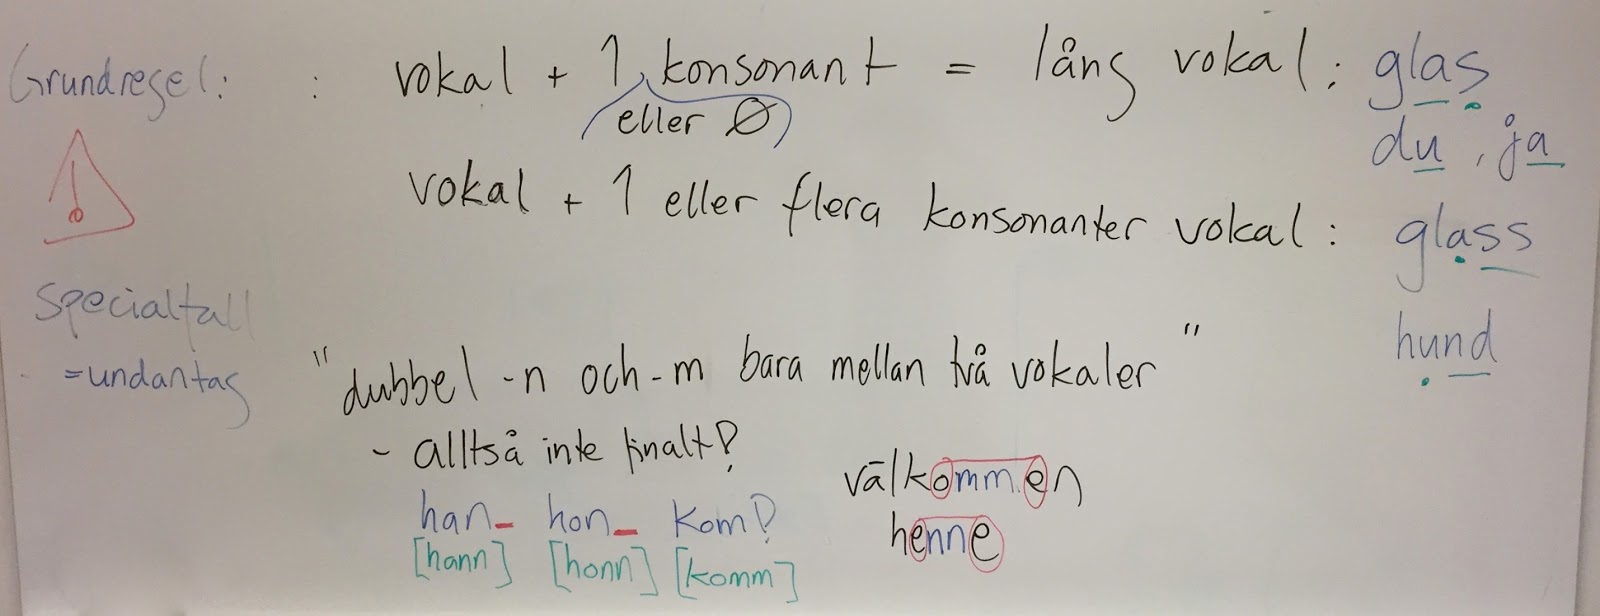 Grundregel: : vokal + 1 konsonant = lång vokal: glas
eller Ø
du, ja
vokal + 1 eller flera konsonanter vokal: glass
hund
Specialfall
=undantag
"dubbel -n och -m bara mellan två vokaler"
- alltså inte finalt?
han_ hon_ kom?
[hann] [honn] [komm]
välkommen
henne